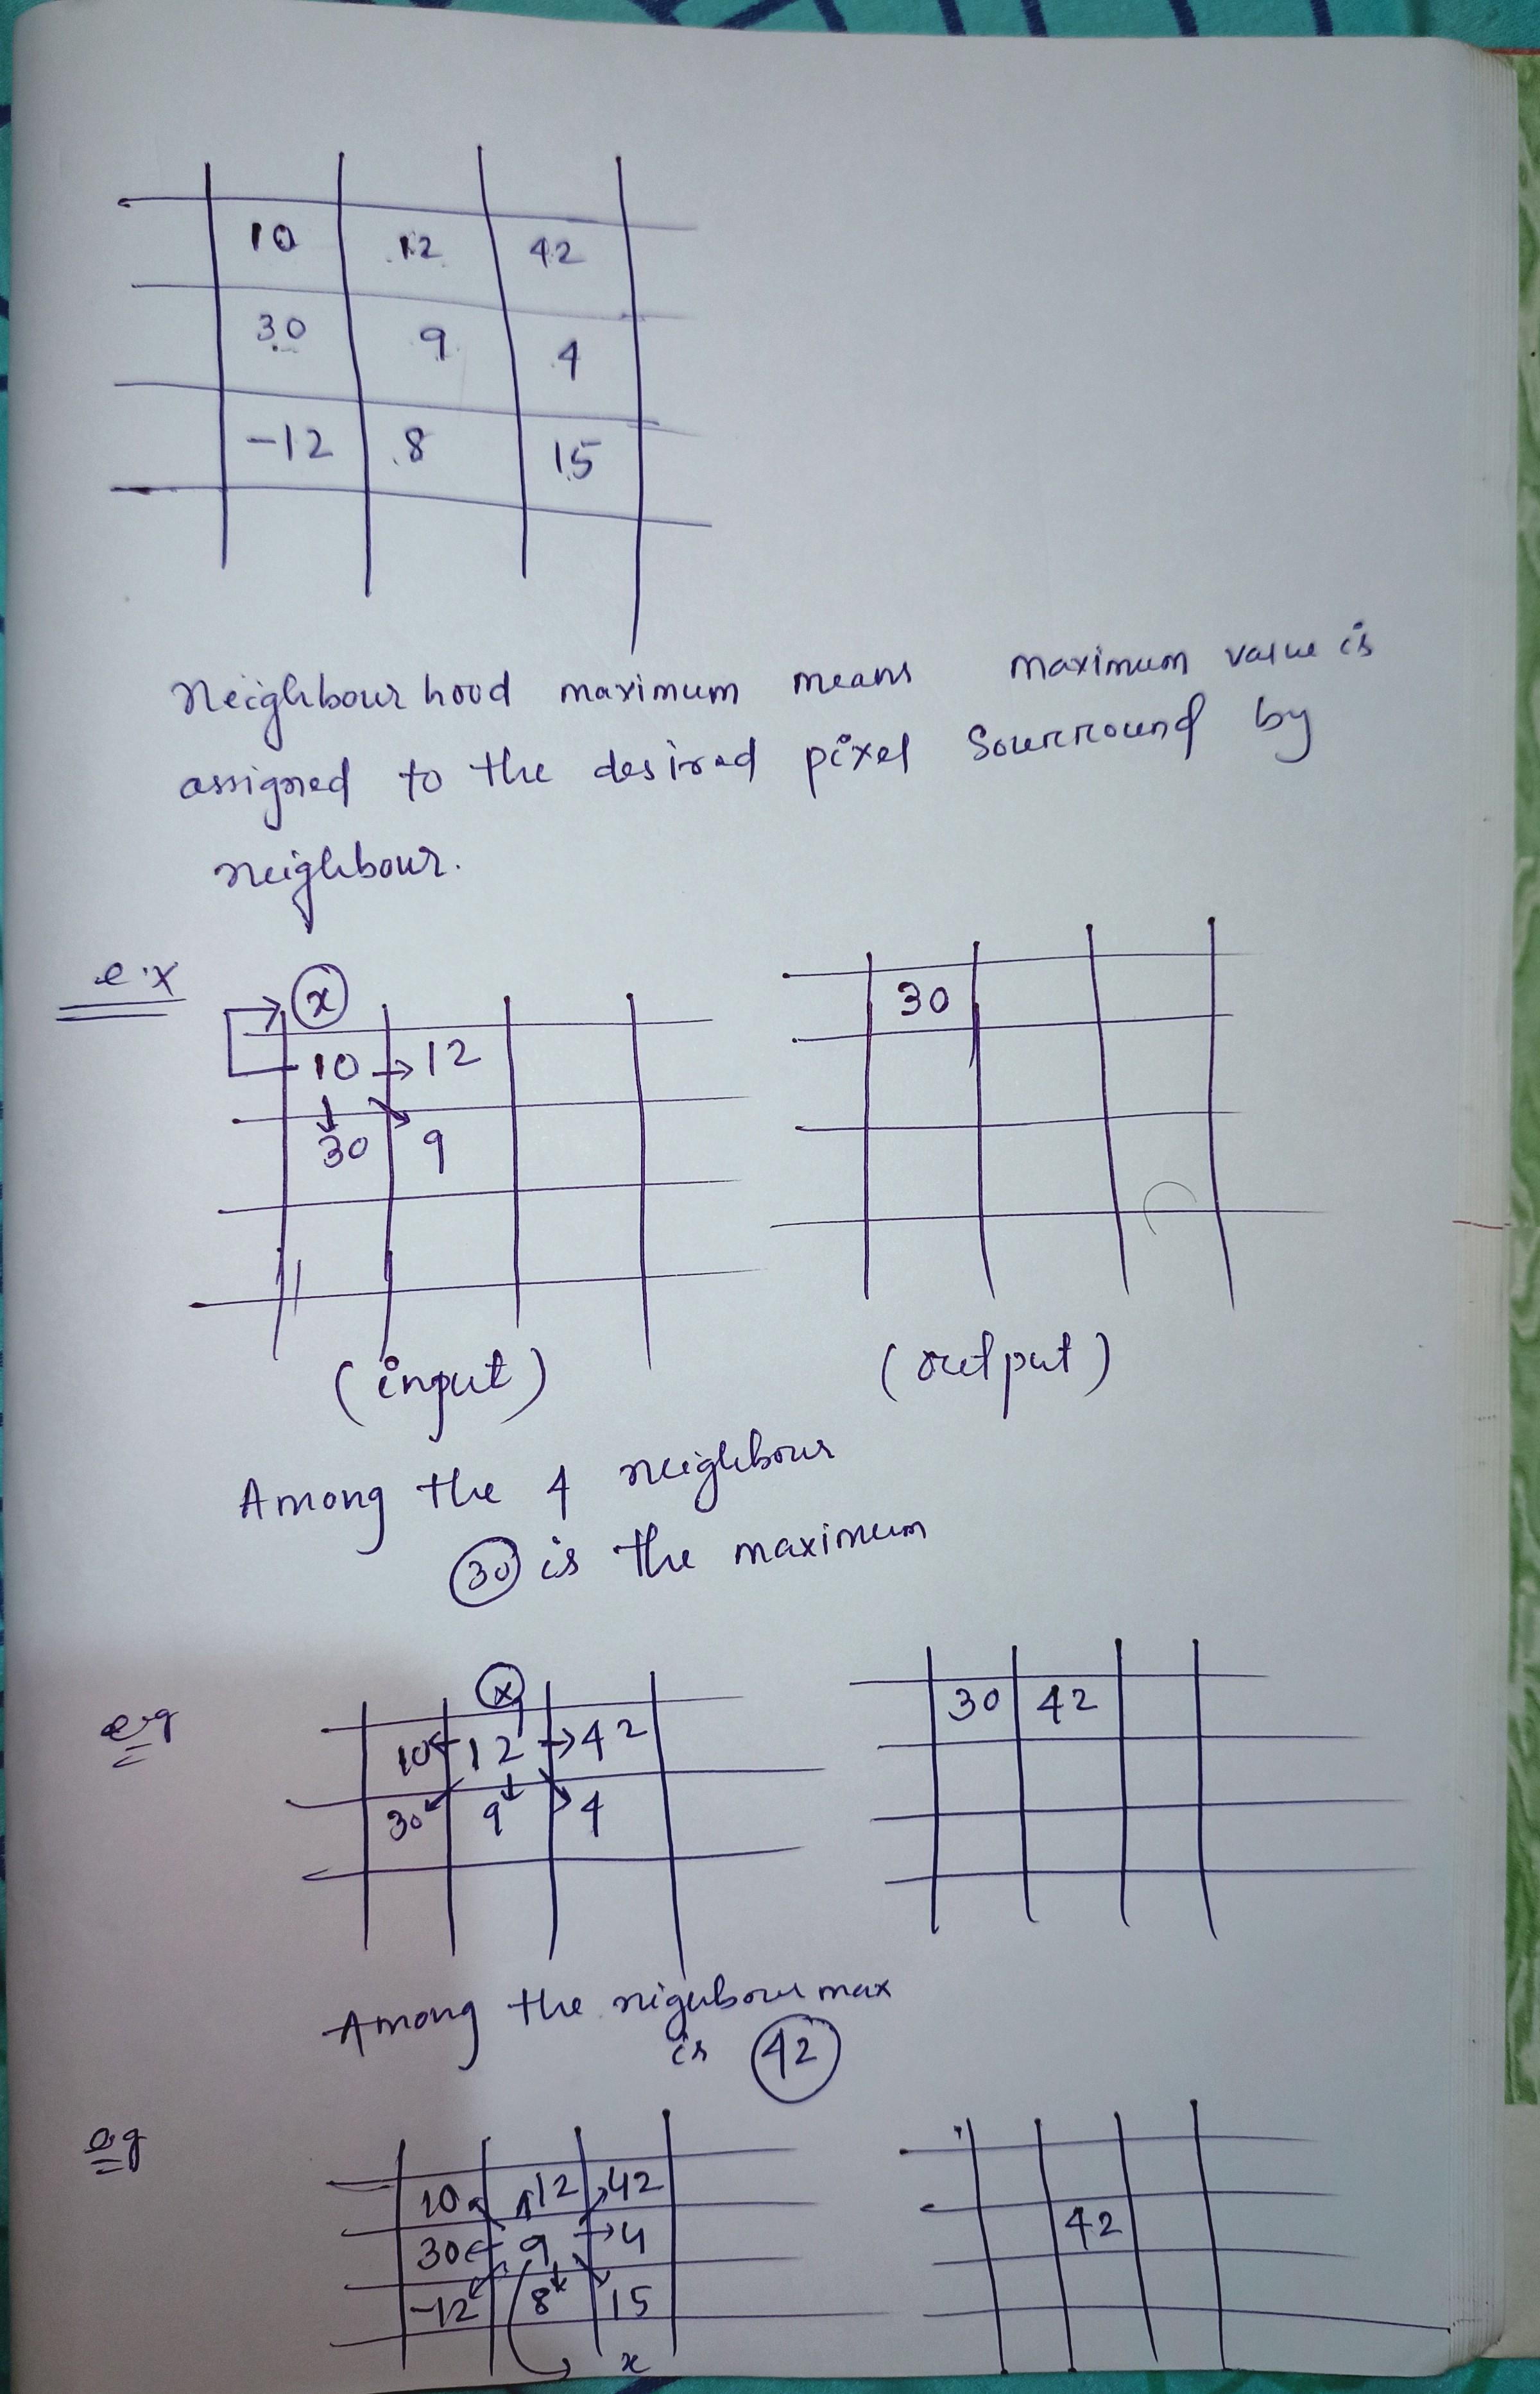 10 12 42
30 9 4
-12 8 15
Neighbourhood maximum means maximum value is
assigned to the desired pixel Sourround by
neighbour.
e.x
x
10 12
30 9
30
(input) (output)
Among the 4 neighbour
30 is the maximum
e.g
x
10 12 42
30 9 4
30 42
Among the nigubour max
is 42
e.g
10 12 42
30 9 4
-12 8 15
x
42